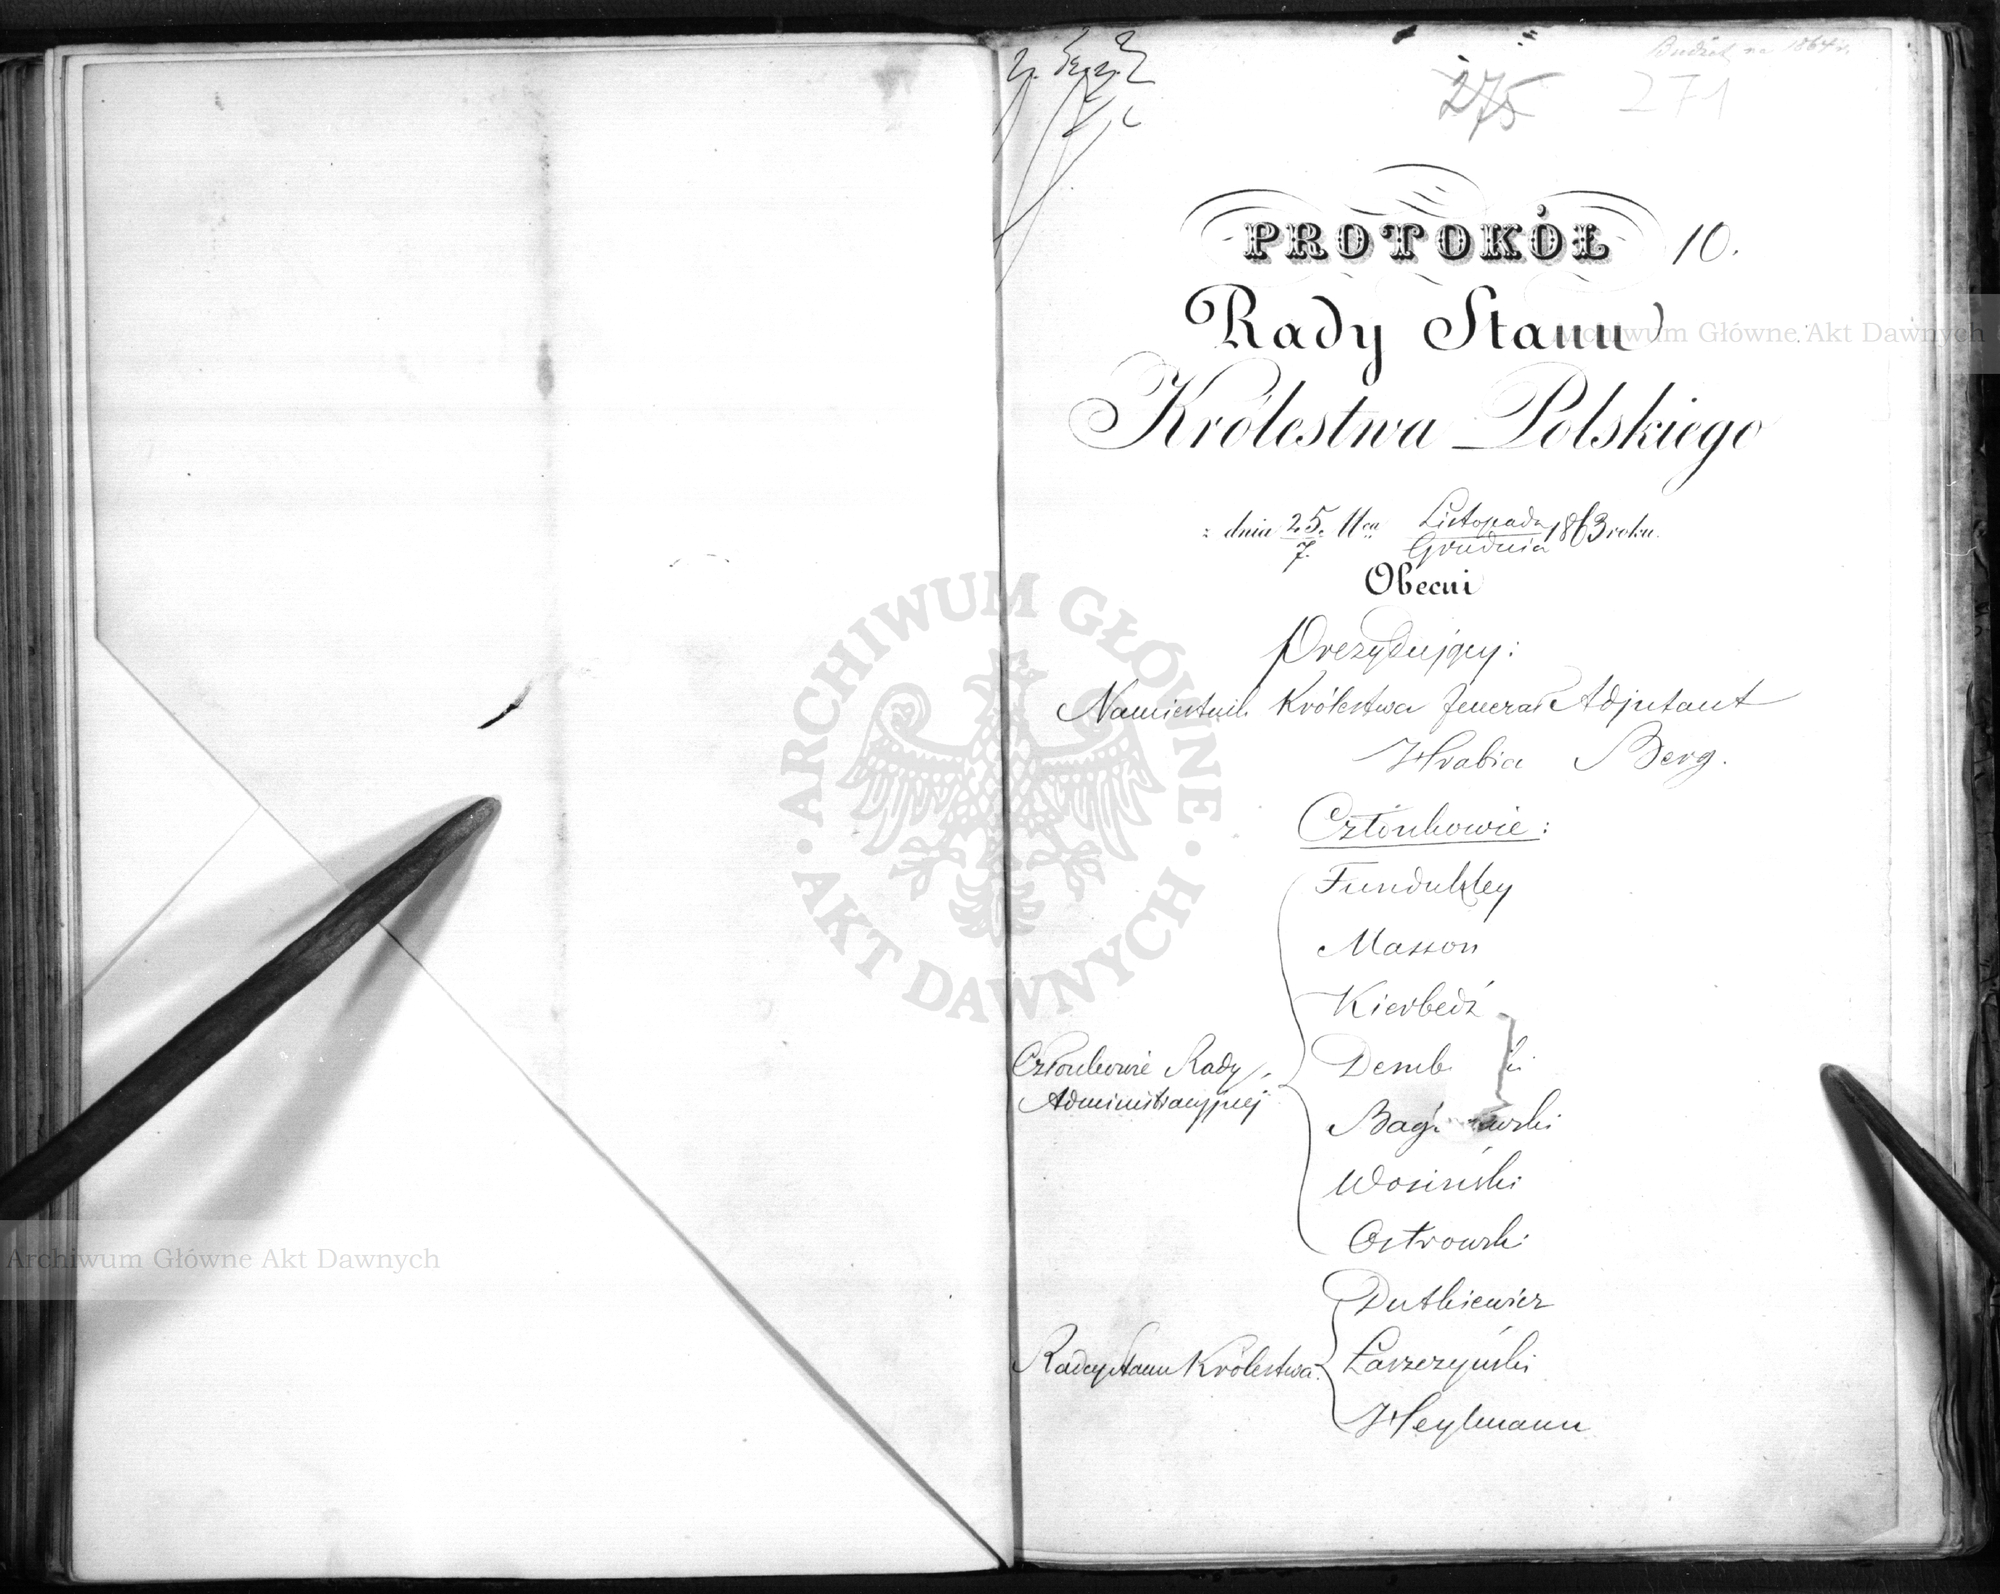 Budżet na 1864 r.
275
271
PROTOKÓŁ 10.
Rady Stanu
Królestwa Polskiego
z dnia 25/7. Mca Listopada/Grudnia 1863 roku.
Obecni
Prezydujący:
Namiestnik Królestwa Jenerał Adjutant
Hrabia Berg.
Członkowie:
Fundukley
Masson
Kierbedź
Członkowie Rady Administracyjnej
Demb ki
Bag ewski
Wosiński
Ostrowski
Dutkiewicz
Radcy Stanu Królestwa
Łaszczyński
Heylmann
ARCHIWUM GŁÓWNE AKT DAWNYCH
Archiwum Główne Akt Dawnych
Archiwum Główne Akt Dawnych